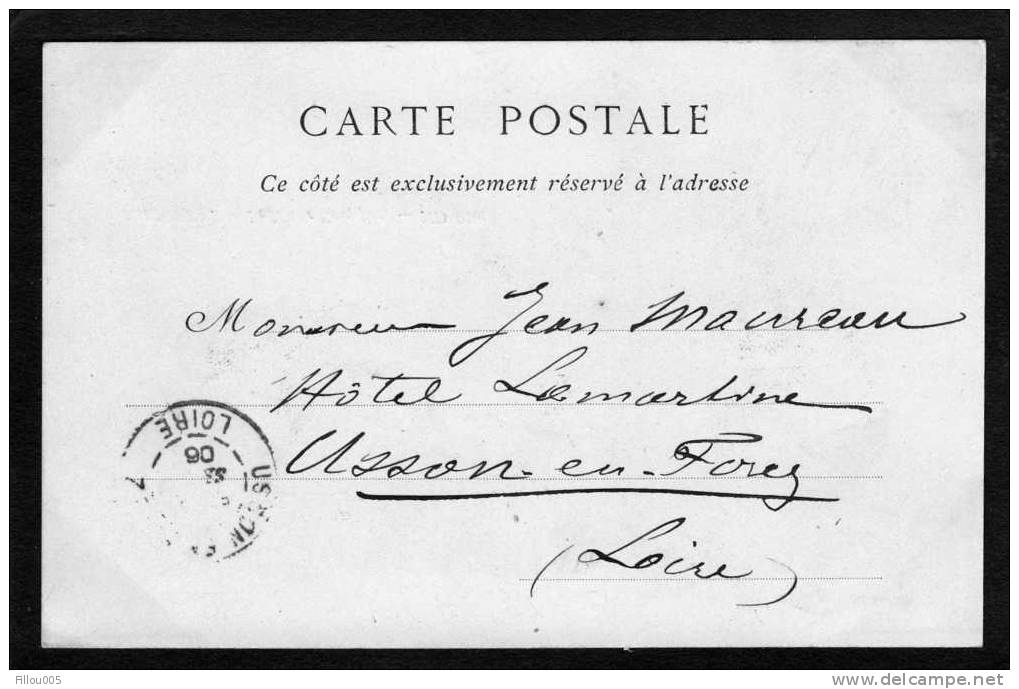 CARTE POSTALE
Ce côté est exclusivement réservé à l'adresse
Monsieur Jean Maureau
Hôtel Lamartine
Usson-en-Forez
(Loire)
LOIRE
06
7
USSON
Filou005
www.delcampe.net